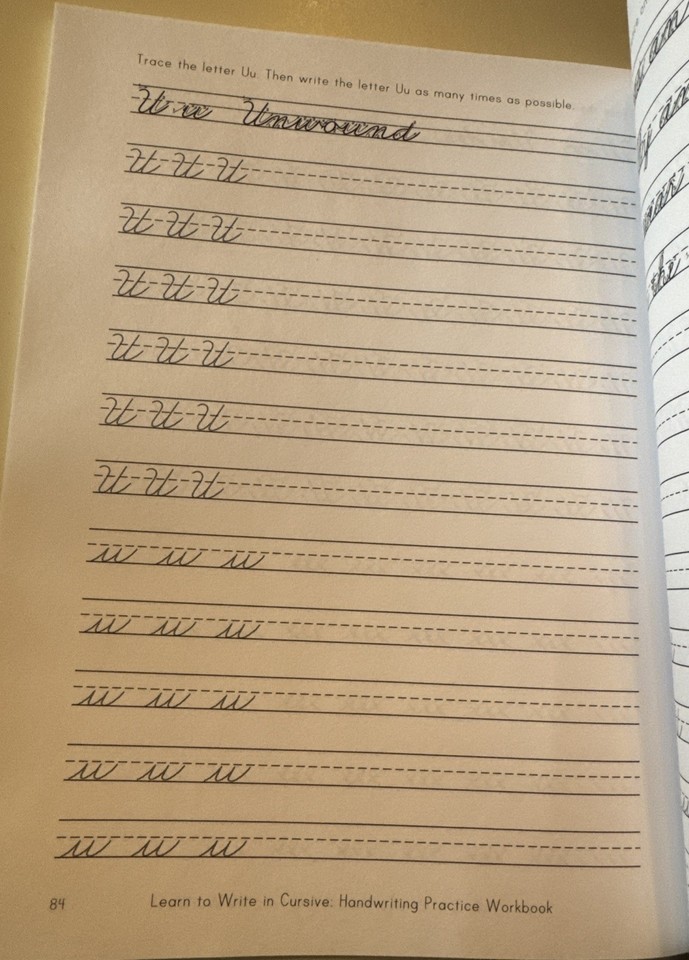 Trace the letter Uu. Then write the letter Uu as many times as possible.
U u Unwound
U U U
U U U
U U U
U U U
U U U
U U U
u u u
u u u
u u u
u u u
u u u
84 Learn to Write in Cursive: Handwriting Practice Workbook